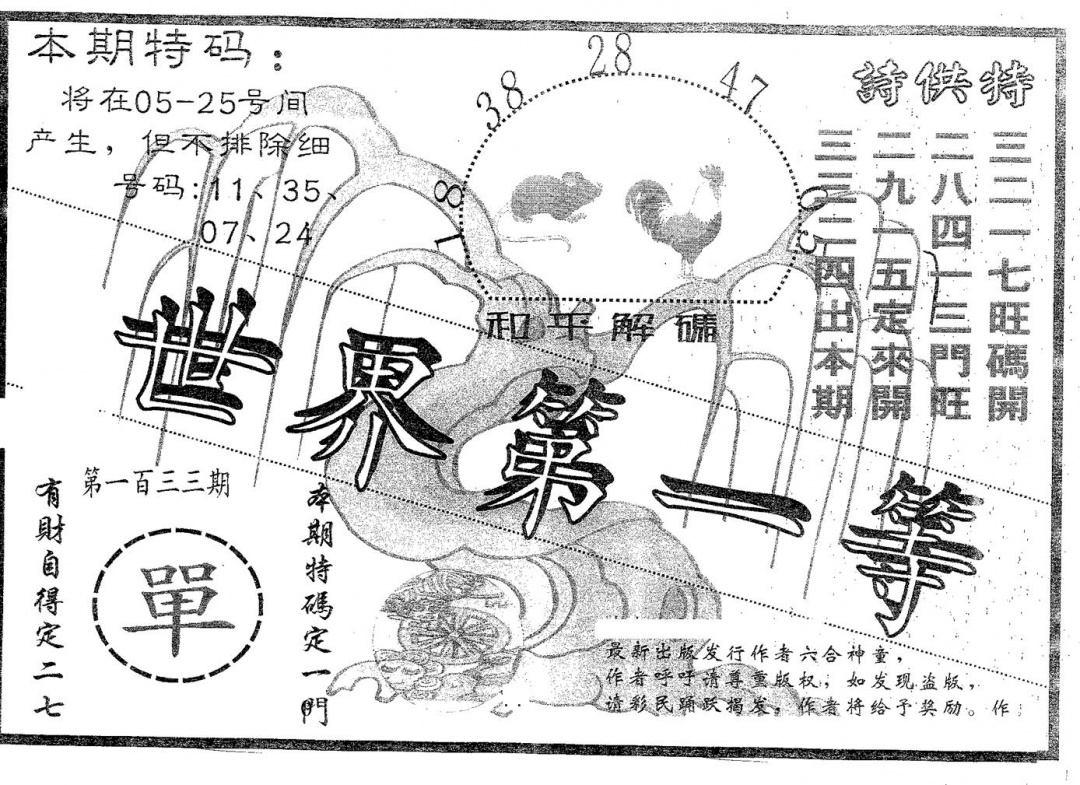 本期特码：
将在05-25号间
产生，但不排除细
号码:11、35、
07、24
18
38
28
47
05
特供詩
三二一七旺碼開
二八四一三門旺
二九一五定來開
三三二四出本期
和平解
世界第一等
第一百三三期
有財自得定二七
單
本期特碼定一門
最新出版发行作者六合神童，
作者呼吁请尊重版权，如发现盗版，
请彩民踊跃揭发，作者将给予奖励。作